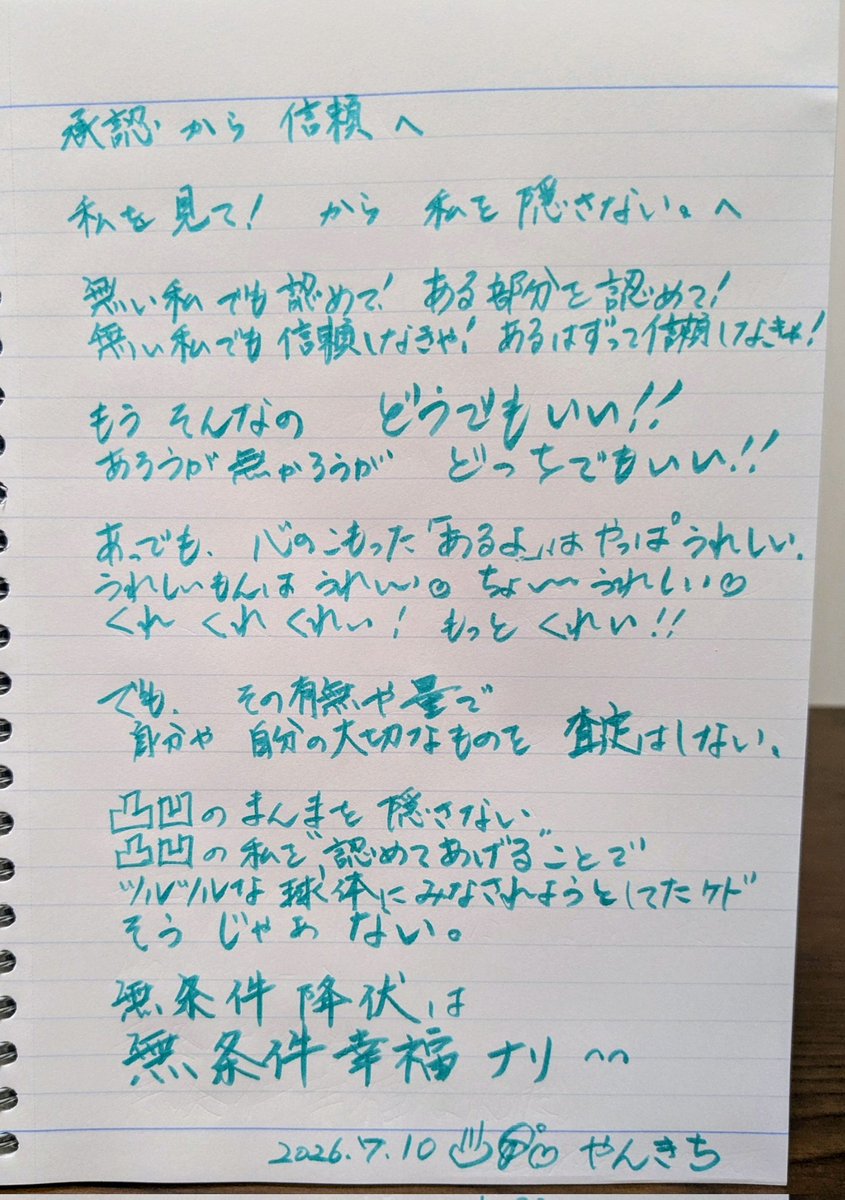 承認から信頼へ
私を見て! から 私を隠さない。へ
無い私でも認めて! ある部分を認めて!
無い私でも信頼しなきゃ! あるはずって信頼しなきゃ!
もう そんなの どうでもいい!!
あろうが無かろうが どっちでもいい!!
あっでも、心のこもった「あるよ」は やっぱ うれしい、
うれしいもんは うれしい♡ ちょ〜〜うれしい♡
くれ くれ くれい! もっと くれい!!
でも、 その有無や量で
自分や 自分の大切なものを 査定はしない、
凸凹のまんまを 隠さない
凸凹の私を"認めてあげる"ことで
ツルツルな 球体にみなされようとしてたケド
そう じゃぁ ない。
無条件降伏は
無条件幸福 ナリ ^^
2026.7.10 やんきち